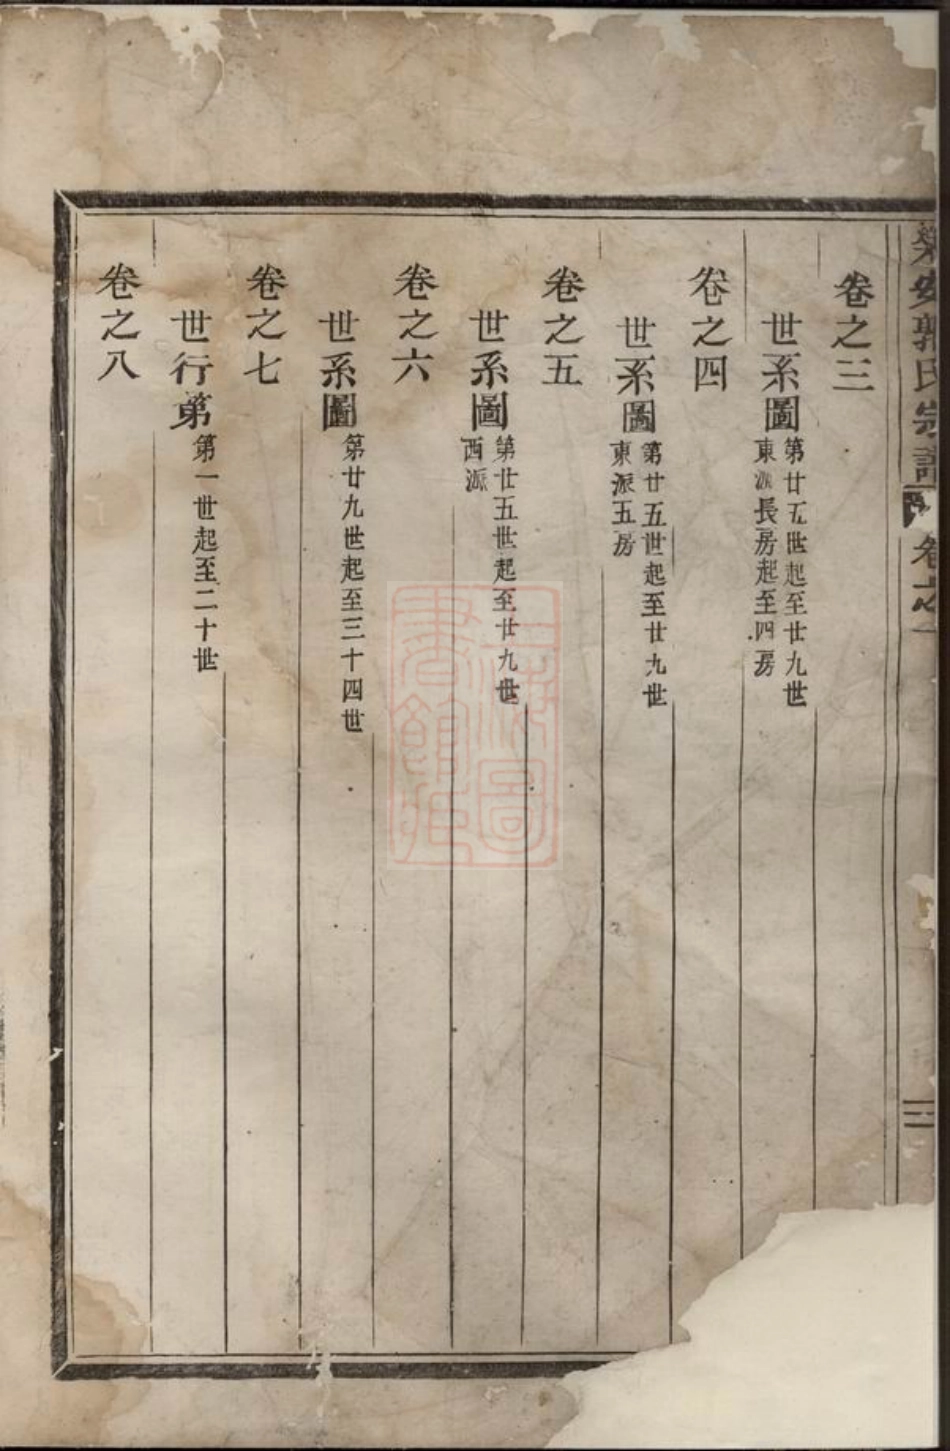 安郭氏宗譜 卷之一 二
卷之三
世系圖 第廿五世起至廿九世
東派長房起至四房
卷之四
世系圖 第廿五世起至廿九世
東派五房
卷之五
世系圖 第廿五世起至廿九世
西派
卷之六
世系圖 第廿九世起至三十四世
卷之七
世行第 第一世起至二十世
卷之八